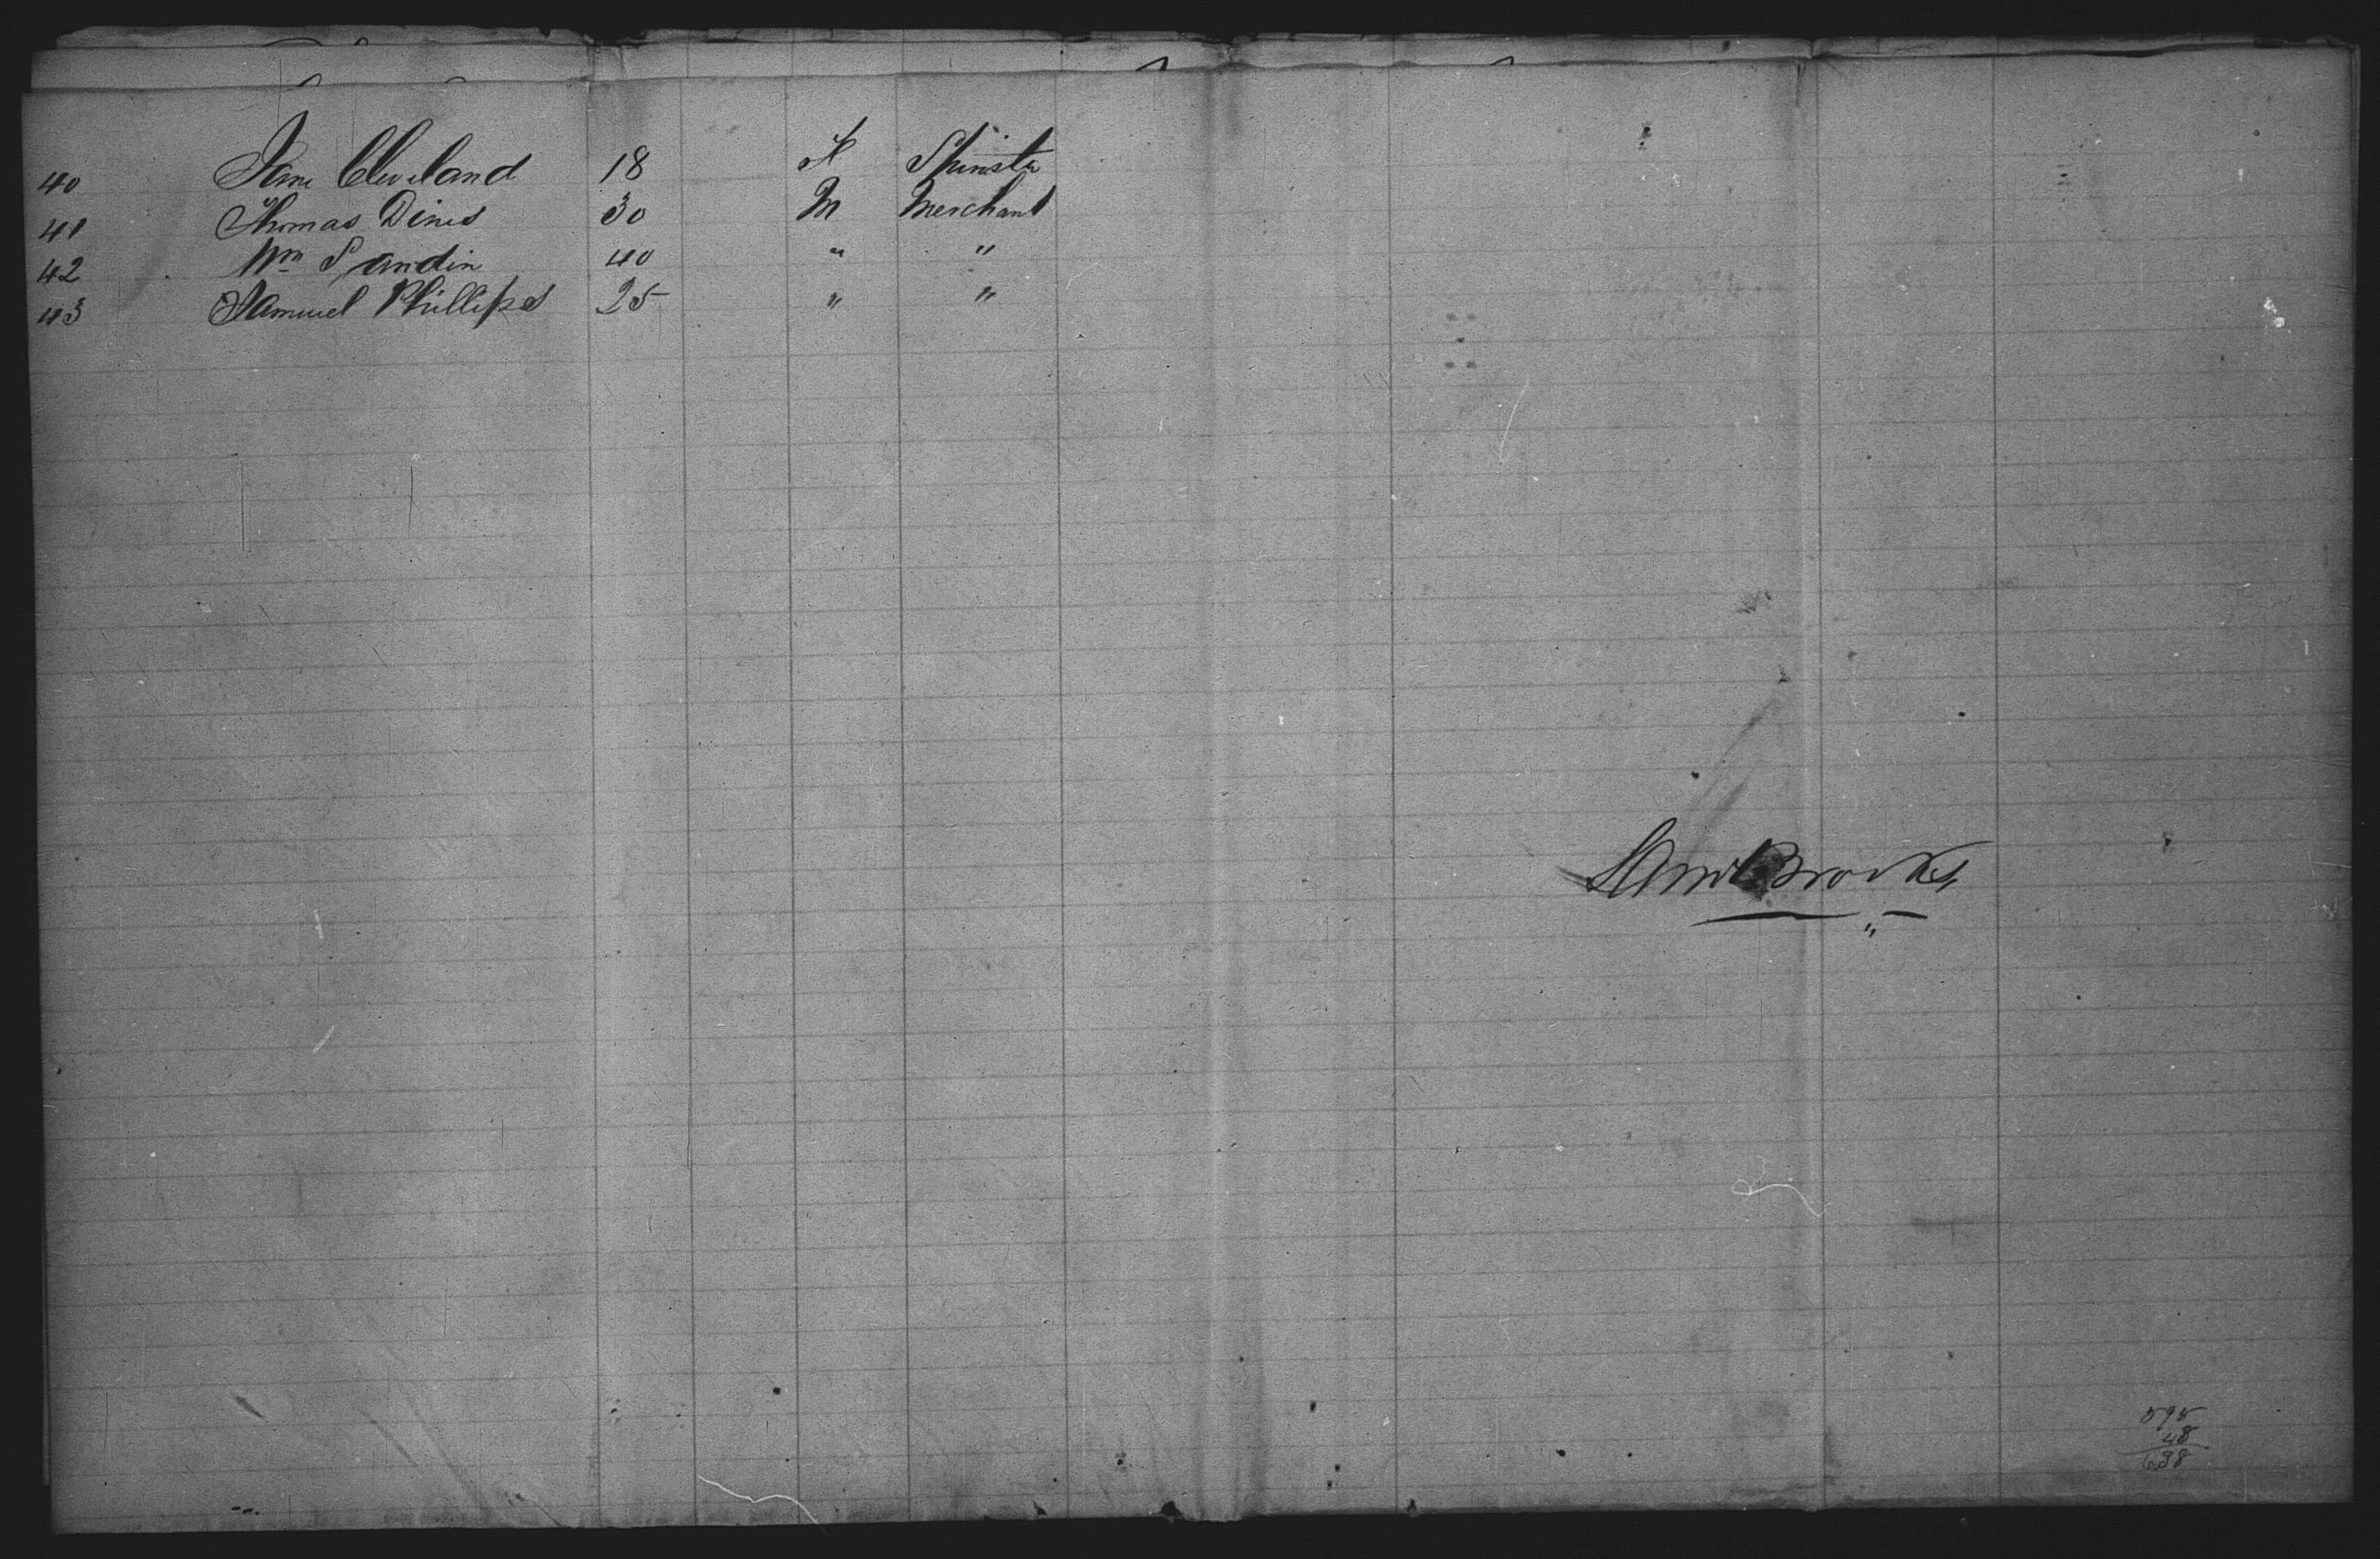 40 Jane Cleveland 18 F Spinster
41 Thomas Dines 30 M Merchant
42 Wm Sandin 40 " "
43 Samuel Phillips 25 " "
Saml Brooks
595
48
638